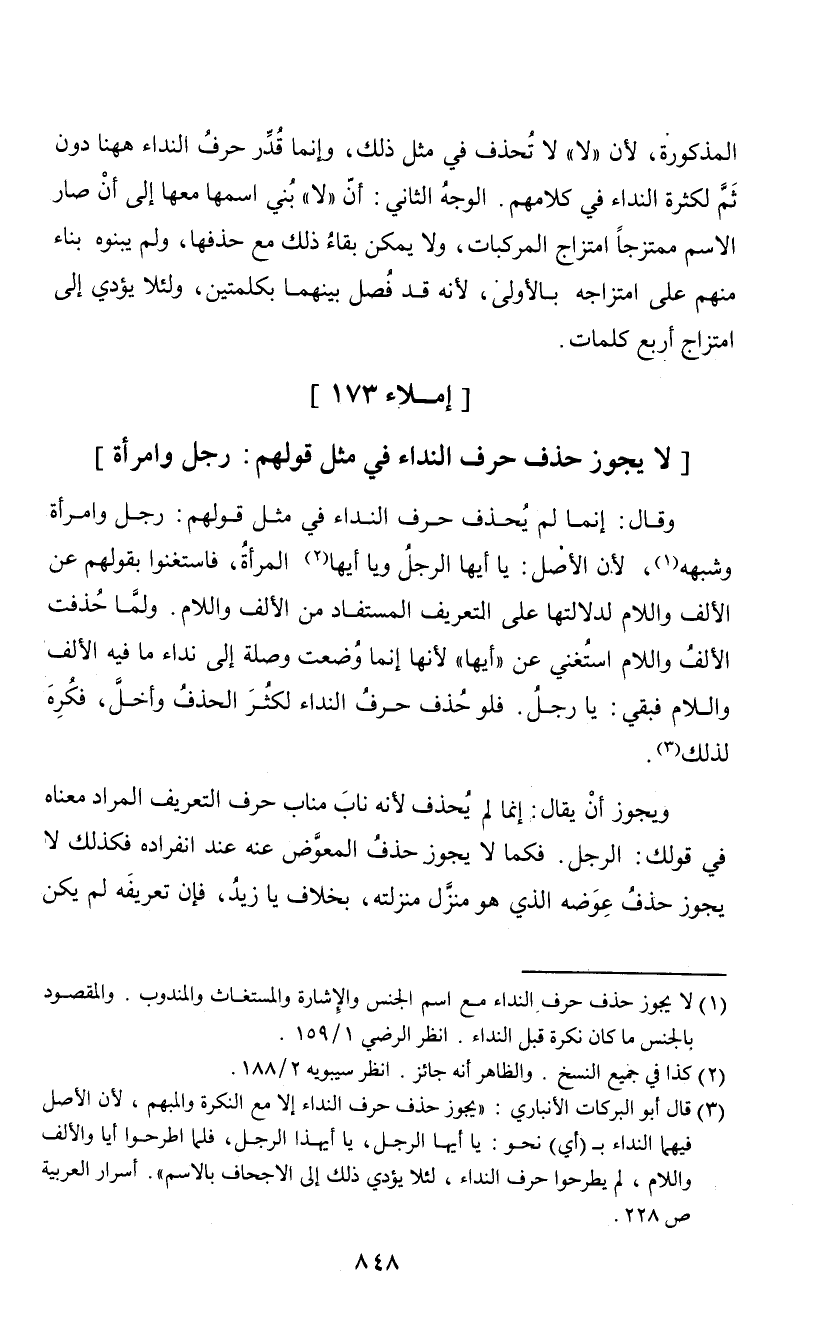 المذكورة، لأن «لا» لا تُحذف في مثل ذلك، وإنما قُدِّر حرفُ النداء ههنا دون
ثَمَّ لكثرة النداء في كلامهم. الوجهُ الثاني: أنّ «لا» بُني اسمها معها إلى أنْ صار
الاسم ممتزجاً امتزاج المركبات، ولا يمكن بقاءُ ذلك مع حذفها، ولم يبنوه بناء
منهم على امتزاجه بالأولىٰ، لأنه قد فُصل بينهما بكلمتين، ولئلا يؤدي إلى
امتزاج أربع كلمات.
[ إملاء ١٧٣ ]
[ لا يجوز حذف حرف النداء في مثل قولهم: رجل وامرأة ]
وقال: إنما لم يُحذف حرف النداء في مثل قولهم: رجل وامرأة
وشبهه(١)، لأن الأصْل: يا أيها الرجلُ ويا أيها(٢) المرأةُ، فاستغنوا بقولهم عن
الألف واللام لدلالتها على التعريف المستفاد من الألف واللام. ولمَّا حُذفت
الألفُ واللام استُغني عن «أيها» لأنها إنما وُضعت وصلة إلى نداء ما فيه الألف
واللام فبقي: يا رجلُ. فلو حُذف حرفُ النداء لكثُرَ الحذفُ وأخلَّ، فكُرِهَ
لذلك(٣).
ويجوز أنْ يقال: إنما لم يُحذف لأنه نابَ مناب حرف التعريف المراد معناه
في قولك: الرجل. فكما لا يجوز حذفُ المعوَّض عنه عند انفراده فكذلك لا
يجوز حذفُ عِوَضه الذي هو منزَّل منزلته، بخلاف يا زيدُ، فإن تعريفَه لم يكن
(١) لا يجوز حذف حرف النداء مع اسم الجنس والإشارة والمستغاث والمندوب. والمقصود
بالجنس ما كان نكرة قبل النداء. انظر الرضي ١/١٥٩.
(٢) كذا في جميع النسخ. والظاهر أنه جائز. انظر سيبويه ٢/١٨٨.
(٣) قال أبو البركات الأنباري: «يجوز حذف حرف النداء إلا مع النكرة والمبهم، لأن الأصل
فيهما النداء بـ (أي) نحو: يا أيها الرجل، يا أيهذا الرجل، فلما اطرحوا أيا والألف
واللام، لم يطرحوا حرف النداء، لئلا يؤدي ذلك إلى الاجحاف بالاسم». أسرار العربية
ص ٢٢٨.
٨٤٨